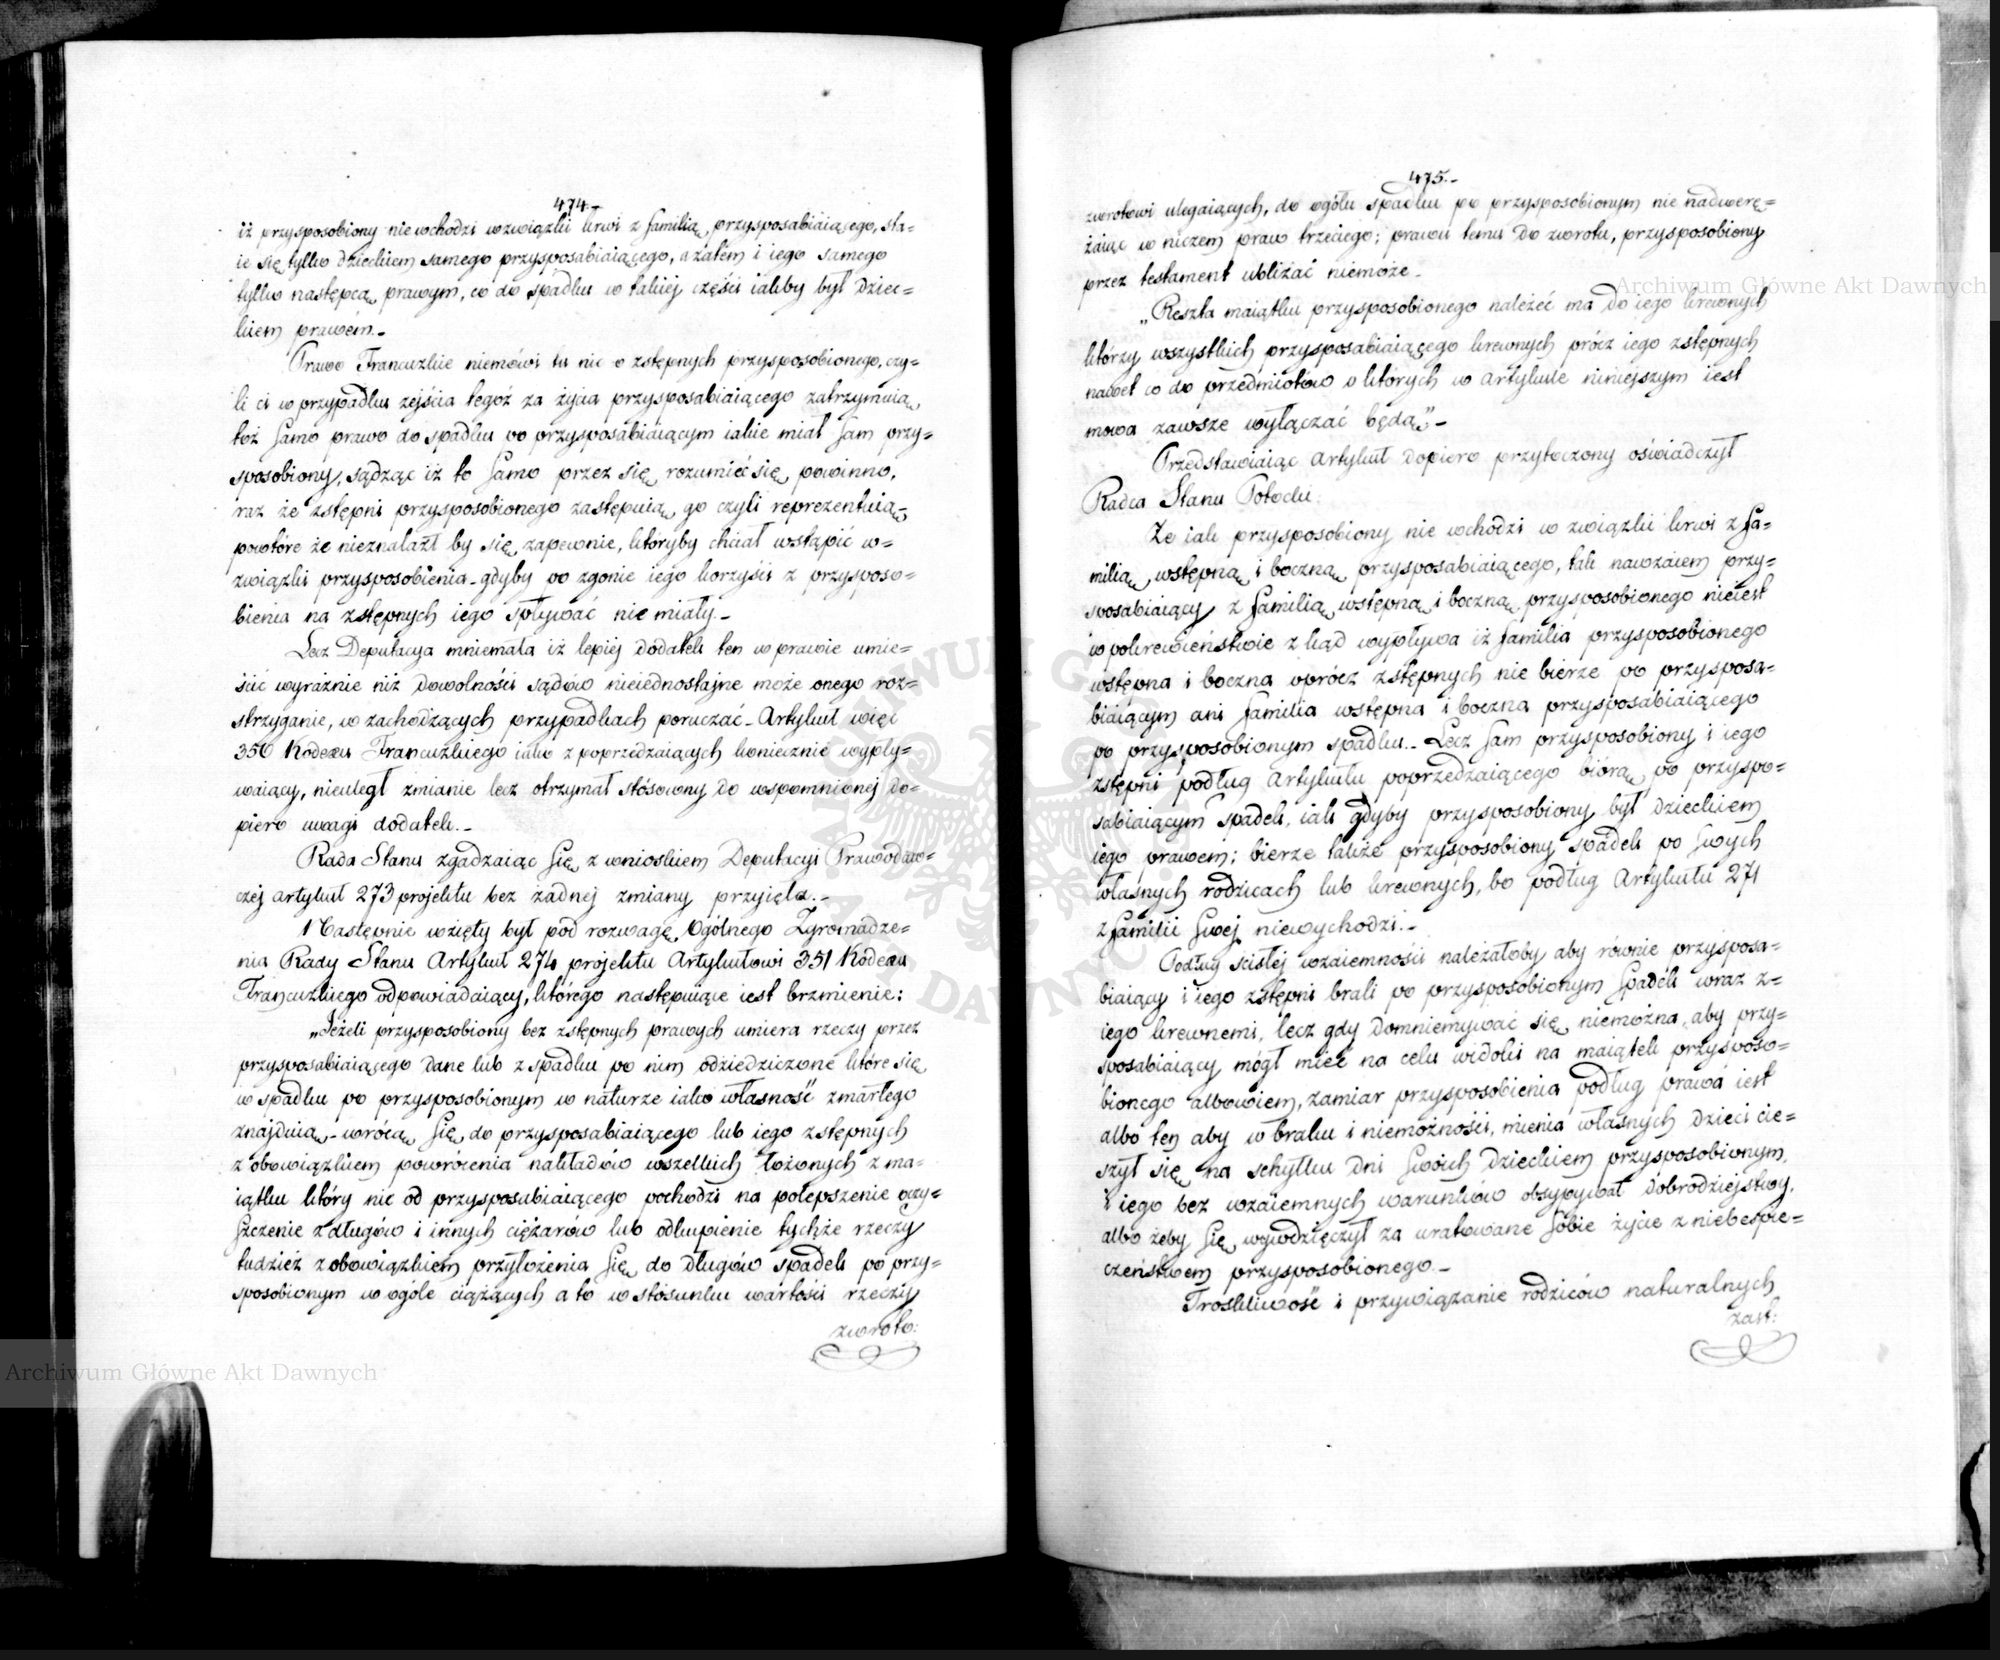 474.-
iż przysposobiony niewchodzi w związki krwi z familią przysposabiaiącego, sta=
ie się tylko dzieckiem samego przysposabiaiącego, a zatem i iego samego
tylko następcą prawym, co do spadku w takiéj części iakby był dziec=
kiem prawém.-
Prawo Francuzkie niemówi tu nic o zstępnych przysposobionego, czy=
li ci w przypadku zejścia tegoż za życia przysposabiaiącego zatrzymuią
toż samo prawo do spadku po przysposabiaiącym iakie miał sam przy=
sposobiony, sądząc iż to samo przez się rozumieć się powinno,
raz że zstępni przysposobionego zastępuią go czyli reprezentuią
powtóre że nieznalazł by się zapewnie, któryby chciał wstąpić w=
związki przysposobienia - gdyby po zgonie iego korzyści z przysposo=
bienia na zstępnych iego spływać nie miały.-
Lecz Deputacya mniemała iż lepiéj dodatek ten w prawie umie=
ścić wyraźnie niż dowolności sądów nieiednostajne może onego roz=
strzyganie, w zachodzących przypadkach poruczać - Artykuł więc
350 Kodexu Francuzkiego iako z poprzedzaiących koniecznie wypły=
waiący, nieuległ zmianie lecz otrzymał stósowny do wspomnionéj do=
piero uwagi dodatek.-
Rada Stanu zgadzaiąc się z wnioskiem Deputacyi Prawodaw=
czéj artykuł 273 projektu bez żadnéj zmiany przyięła.-
Następnie wzięty był pod rozwagę Ogólnego Zgromadze=
nia Rady Stanu Artykuł 274 projektu Artykułowi 351 Kodexu
Francuzkiego odpowiadaiący, którego następuiące iest brzmienie:
„Jeżeli przysposobiony bez zstępnych prawych umiera rzeczy przez
przysposabiaiącego dane lub z spadku po nim odziedziczone które się
w spadku po przysposobionym w naturze iako własność zmarłego
znajduią - wrócą się do przysposabiaiącego lub iego zstępnych
z obowiązkiem powrócenia nakładów wszelkich łożonych z ma=
iątku który nie od przysposabiaiącego pochodzi na polepszenie oczy=
szczenie z długów i innych ciężarów lub odkupienie tychże rzeczy
tudzież z obowiązkiem przyłożenia się do długów spadek po przy=
sposobionym w ogóle ciążących a to w stósunku wartości rzeczy
zwroto:
475.-
zwrotowi ulegaiących, do ogółu spadku po przysposobionym nie nadwerę=
żaiąc w niczem praw trzeciego; prawu temu do zwrotu, przysposobiony
przez testament ubliżać niemoże.
„Reszta maiątku przysposobionego należeć ma do iego krewnych
którzy wszystkich przysposabiaiącego krewnych prócz iego zstępnych
nawet co do przedmiotów o których w artykule niniejszym iest
mowa zawsze wyłączać będą”.-
Przedstawiaiąc artykuł dopiero przytoczony oświadczył
Radca Stanu Potocki.
Że iak przysposobiony nie wchodzi w związki krwi z fa=
milią, wstępną i boczną przysposabiaiącego, tak nawzaiem przy=
sposabiaiący z familią wstępną i boczną przysposobionego nieiest
w pokrewieństwie z kąd wypływa iż familia przysposobionego
wstępna i boczna oprócz zstępnych nie bierze po przysposa=
biaiącym ani familia wstępna i boczna przysposabiaiącego
po przysposobionym spadku.- Lecz sam przysposobiony i iego
zstępni podług artykułu poprzedzaiącego biorą po przyspo=
sabiaiącym spadek, iak gdyby przysposobiony był dzieckiem
iego prawém; bierze także przysposobiony spadek po swych
własnych rodzicach lub krewnych, bo podług Artykułu 271
z familii swéj niewychodzi.-
Podług scisłéj wzaiemności należałoby aby równie przysposa=
biaiący i iego zstępni brali po przysposobionym spadek wraz z=
iego krewnemi, lecz gdy domniemywać się niemożna, aby przy=
sposabiaiący mógł mieć na celu widoki na maiątek przysposo=
bionego albowiem, zamiar przysposobienia podług prawa iest
albo ten aby w braku i niemożności, mienia własnych dzieci cie=
szył się na schyłku dni swoich dzieckiem przysposobionym,
i iego bez wzaiemnych warunków obsypywał dobrodziejstwy,
albo żeby się wywdzięczył za uratowane sobie życie z niebespie=
czeństwem przysposobionego.-
Troskliwość i przywiązanie rodziców naturalnych
zast:
Archiwum Główne Akt Dawnych
Archiwum Główne Akt Dawnych